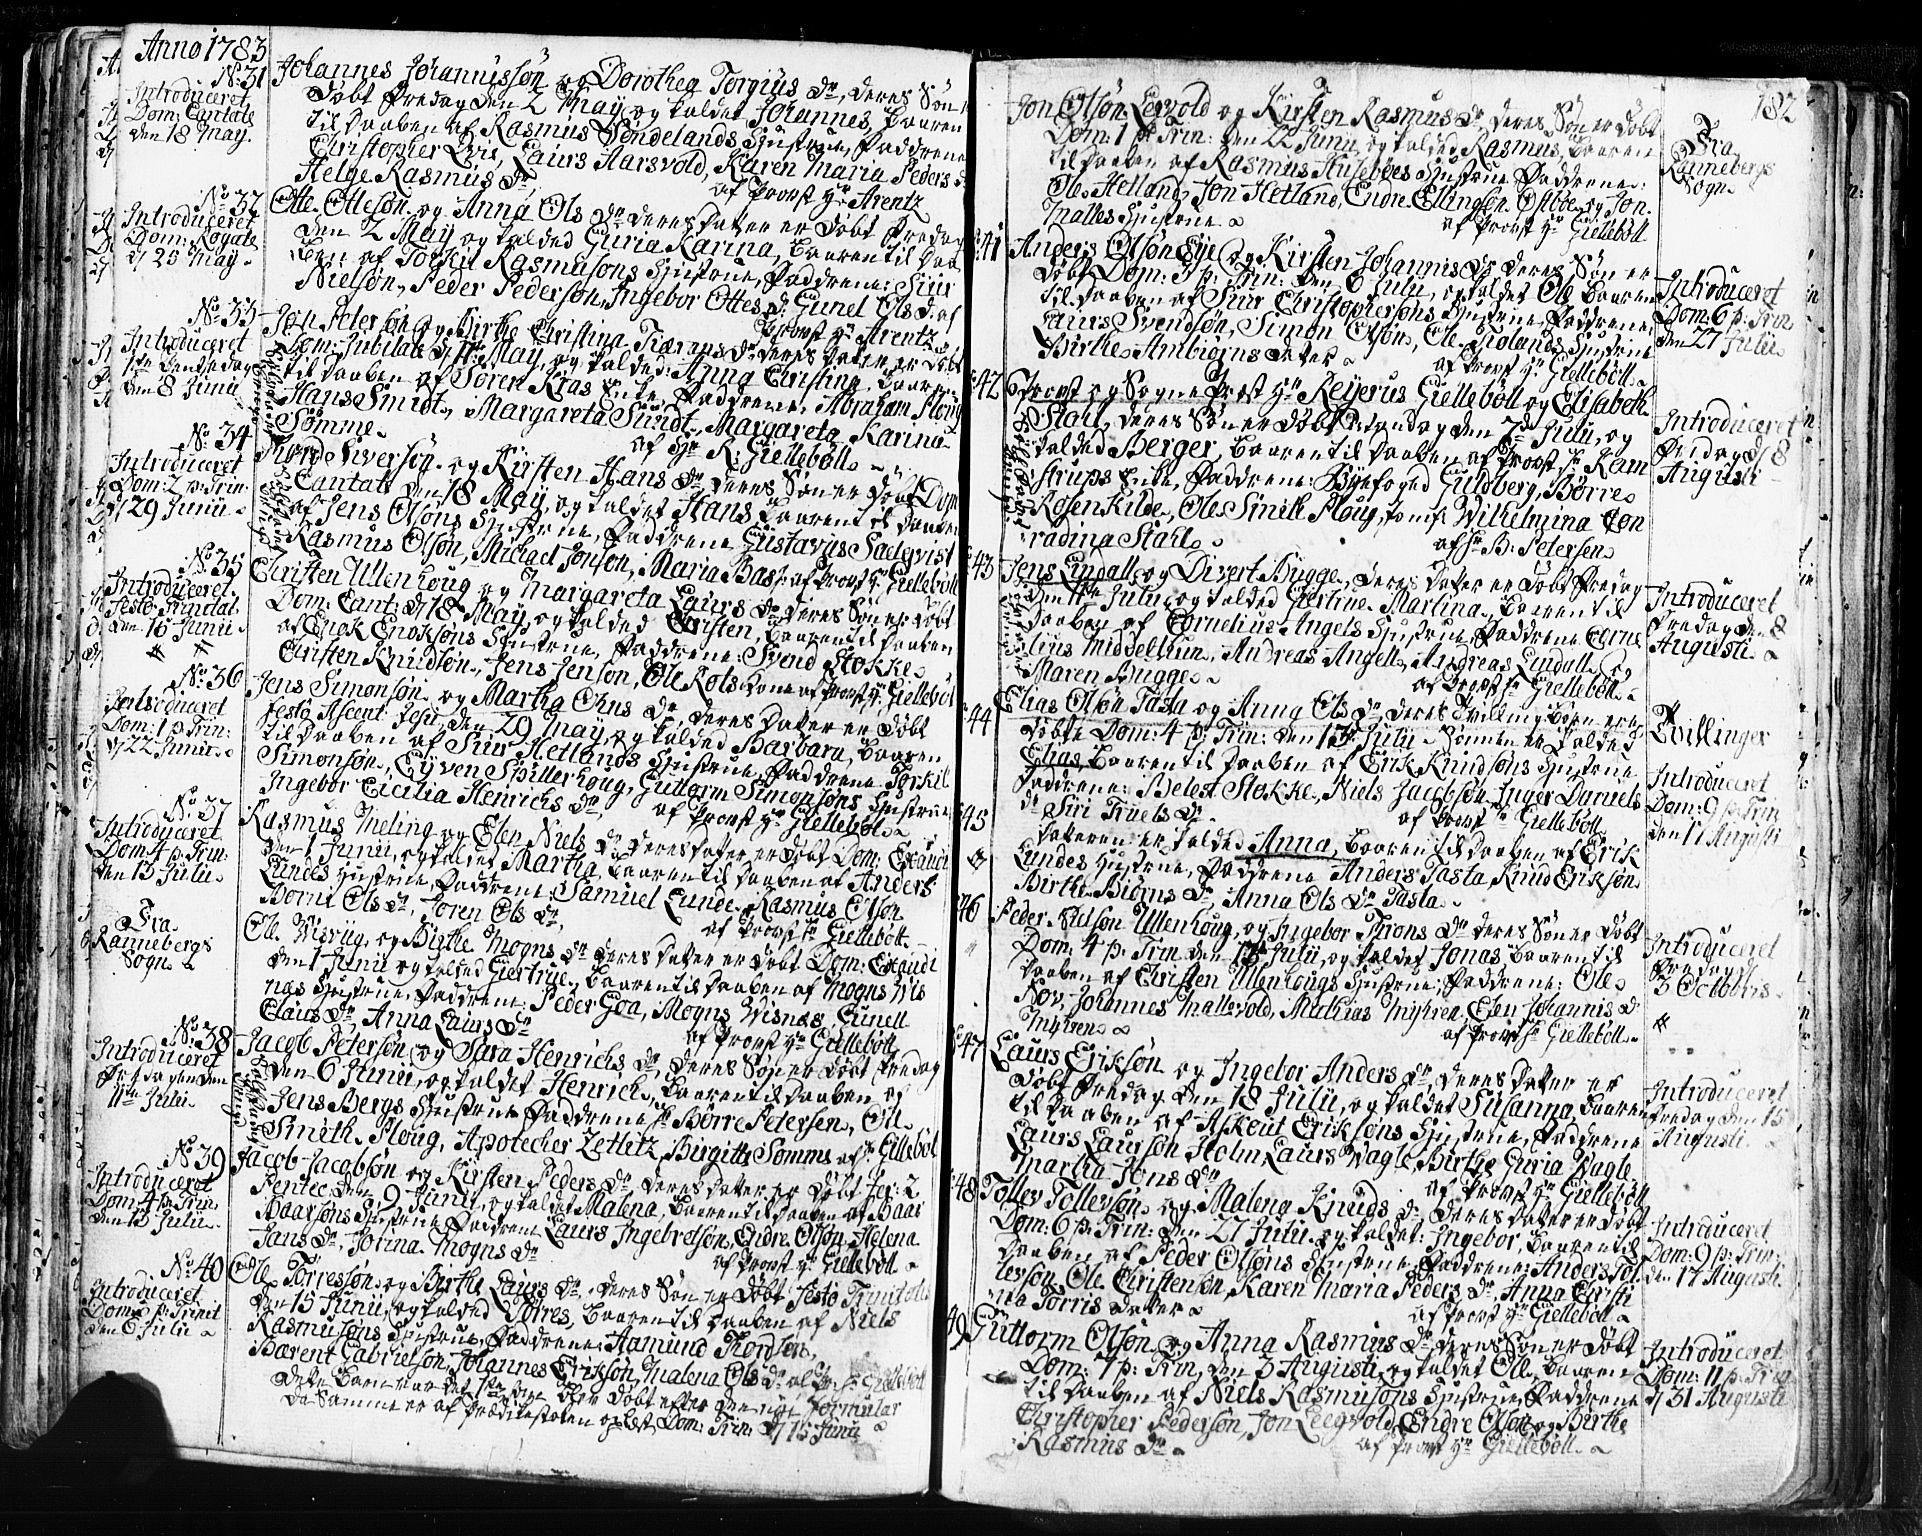 Anno 1783
No: 31
Introduceret
Dom: Cantate
den 18 May.
Johannes Johannissön og Dorothea Torgius dr, deres Sön er
döbt Fredag den 2 May og kaldet Johannes, baaren
til daaben af Rasmus Söndelands Hustrue, Faddrene
Christopher Evie, Laurs Harsvold, Karen Maria Peders d.
Helge Rasmus dr,
af Provst Hr Arentz
No 32
Introduceret
Dom: Rogate
d 25 May.
Otte Ottesön og Anna Ols dr deres dater er döbt Fredag
den 2 May og kalded Guria Karina, baaren til daa
ben af Torkil Rasmusöns Hustrue, Faddrene: Siur
Nielsön, Peder Pedersön, Ingebor Ottes d. Gunel Ols d. af
Provst Hr Arentz
No: 33
Introduceret
1te Pentsedag
den 8 Junii
Jon Petersön og Birthe Christina Tiærans dr deres dater er döbt
Dom: Jubilate d 11te May, og kalded: Anna Christina, baaren
til daaben af Sören Kias Enke, Faddrene, Abraham Ploug
Hans Smidt, Margareta Sundt, Margareta Karina
Sömme
af Hr R: Gielleböll
No 34
Introduceret
Dom: 2 p: Trin:
d 29 Junii
Tiord Siversön og Kirsten Hans dr deres Sön er döbt Dom
Cantate den 18 May, og kaldet Hans baaren til daaben
af Jens Olsöns Hustrue, Faddrene Gustavus Saelqvist
Rasmus Olsön, Michael Jonsön, Maria Bas: af Provst Hr Giellebölt
No: 35
Introduceret
Festo Trinitat
den 15 Junii
Christen Ullenhoug og Margareta Laurs dr deres Sön er döbt
Dom: Cant: d 18 May, og kalded Christen, baaren til daaben
af Enok Enoksöns Hustrue, Faddrene: Svend Stokke
Christen Knudsön, Jens Jensön, Ole Rots Kone af Provst Hr Gielleböl
No: 36
Introduceret
Dom: 1 p: Trin:
d 22 Junii
Jens Simonsön og Martha Ohns dr, deres dater er döbt
Festo Ascent: Jesu den 29 May, og kalded Barbara, baaren
til daaben af Siur Hetlands Hustrue, Faddrene Torkil
Simonsön, Eyven Spillerhoug, Guttorm Simonsöns Hustrue
Ingebor Cicilia Henrichs dr
af Provst Hr Giellebölt
No: 37
Introduceret
Dom 4 p: Trin:
den 13 Julii
Rasmus Meling og Elen Niels dr deres dater er döbt Dom: Exaudi
den 1 Junii, og kaldet Martha, baaren til daaben af Anders
Lundes Hustrue, Faddrene: Samuel Lunde, Rasmus Olsön
Borni Ols dr, Joren Ols dr
af Provst Hr Giellebölt
Fra
Rannebergs
Sogn
Ole Wisvig, og Birthe Mogns dr deres dater er döbt Dom: Exaudi
den 1 Junii og kalded Giertrue, baaren til daaben af Mogns Wis
nes Hustrue, Faddrene: Peder Goa, Mogns Wisnes, Gunell
Claus dr, Anna Laurs dr
af Provst Hr Giellebölt
No: 38
Introduceret
Fredagen den
11te Julii
Jacob Petersön og Sara Henrichs dr, deres Sön er döbt Fredag
den 6 Junii, og kaldet Henrich, baaren til daaben af
Jens Bergs Hustrue Faddrene Hr Börre Petersen, Ole
Smith Ploug, Apotecher Zetlitz, Birgitte Somms af Hr Gillebölt
No 39
Introduceret
Dom: 4 p: Trin:
den 13 Julii
Jacob Jacobsön og Kirsten Peders dr deres dater er döbt Fer: 2
Pentec: den 9 Junii, og kaldet Malena, baaren til daaben af Baar
Baarsöns Hustrue Faddrene Laurs Ingebretsön, Endre Olsön, Helena
Jans dr, Jorina Mogns dr
af Provst Hr Giellebölt
No: 40
Introduceret
Dom: 3 p: Trinit
den 6 Julii
Ole Torresön og Birthe Laurs dr, deres Sön er döbt Festo Trinitatis
den 15 Junii, og kalded Torres, baaren til daaben af Niels
Rasmusöns Hustrue, Faddrene: Aamund Tiordsön,
Barent Gabrielsön, Johannes Eriksön, Malena Ols dr af Pr: Hr Giellebölt
Dette Barn var det 1ste som blev döbt efter den nye Formular
da Samme er af Prædikestolen oplest Dom: Trin: d 15 Junii
182
Jon Olsön Legvold og Kirsten Rasmus dr deres Sön er döbt
Dom: 1 p Trin: den 22 Junii og kalded Rasmus, baaren
til daaben af Rasmus Huseböes Hustrue Faddrene:
Ole Helland, Jon Hetland, Endre Ellingsön Ostböe og Jon
Malles Hustrue
af Provst Hr Giellebölt
Fra
Rannebergs
Sogn
41
Anders Olsön Eye og Kirsten Johannis dr deres Sön er
döbt Dom: 3 p: Trin: den 6 Julii, og kaldet Ole baaren
til daaben af Siur Christophersöns Hustrue, Faddrene,
Laurs Svendsön, Simon Olsön, Ole Tiolands Hustrue
Birthe Ambiörns dater
af Provst Hr Giellebölt
Introduceret
Dom: 6 p: Trin
den 27 Julii
42
Provst og Sogne Præst Hr Reyerus Giellebölt og Elisabeth
Stahl, deres Sön er döbt Mandag den 7de Julii, og
kalded Berger, baaren til daaben af Provst Hr Kam
strups Enke, Faddrene: Byefoged Guldberg, Börre
Rosenkilde, Ole Smith Ploug, Jomfr Wilhelmina Con
radina Stahl
af Hr B: Petersen
Introduceret
Fredag d 8
Augusti
43
Jens Lindall og Divert Bugge, deres dater er döbt Fredag
den 11te Julii, og kalded Giertrue Martina, baaren til
daaben af Cornelius Angels Hustrue, Faddrene Corne
lius Middelthun, Andreas Angell, Andreas Lindall og
Maren Bugge
af Provst Hr Giellebölt
Introduceret
Fredag den 8
Augusti
44
Elias Olsön Tasta og Anna Ols dr deres Tvilling Börn ere
döbte Dom: 4 p: Trin: den 13 Julii Sönnen er kaldet
Elias, baaren til daaben af Erik Knudsöns Hustrue
Faddrene: Belest Stokke, Niels Jacobsön, Inger Daniels
dr Siri Truels dr
af Provst Hr Giellebölt
Tvillinger
Introduceret
Dom: 9 p: Trin
den 17 Augusti
45
Dateren er kalded Anna, baaren til daaben af Erik
Lundes Hustrue, Faddrene Anders Tasta, Knud Eriksön
Birthe Biörns dr, Anna Ols dr Tasta
46
Peder Nilsön Ullenhoug, og Ingebor Trons dr deres Sön er döbt
Dom: 4 p: Trin den 13 Julii, og kaldet Jonas baaren til
daaben af Christen Ullenhougs Hustrue, Faddrene: Ole
Nov, Johannes Mallevold, Mathias Myhren, Elen Johannis d.
Myhren
af Provst Hr Giellebölt
Introduceret
Fredag d
3 Octobris
47
Laurs Eriksön og Ingebor Anders dr, deres dater er
döbt Fredag den 18 Julii, og kaldet Susanna, baaren
til daaben af Askout Eriksöns Hustrue, Faddrene
Laurs Laursön Holm, Laurs Vagle, Birthe Guria Vagle
Martha Jons dr
af Provst Hr Giellebölt
Introduceret
Fredag den 15
Augusti
48
Tollev Tollevsön og Malena Knuds d. deres dater er döbt
Dom: 6 p: Trin: den 27 Julii og kaldet: Ingebor, baaren til
daaben af Peder Olsöns Hustrue, Faddrene: Anders Tol
levsön, Ole Christensön, Karen Maria Peders dr, Anna Christi
na Torris dater
af Provst Hr Giellebölt
Introduceret
Dom: 9 p: Trin:
den 17 Augusti
49
Guttorm Olsön og Anna Rasmus dr deres Sön er döbt
Dom: 7 p: Trin, den 3 Augusti og kaldet Ole, baaren
til daaben af Niels Rasmusöns Hustrue, Faddrene
Christopher Pedersön, Jon Leegvold, Endre Olsön og Birthe
Rasmus dr
af Provst Hr Giellebölt
Introduceret
Dom: 11 p: Trin
d 31 Augusti